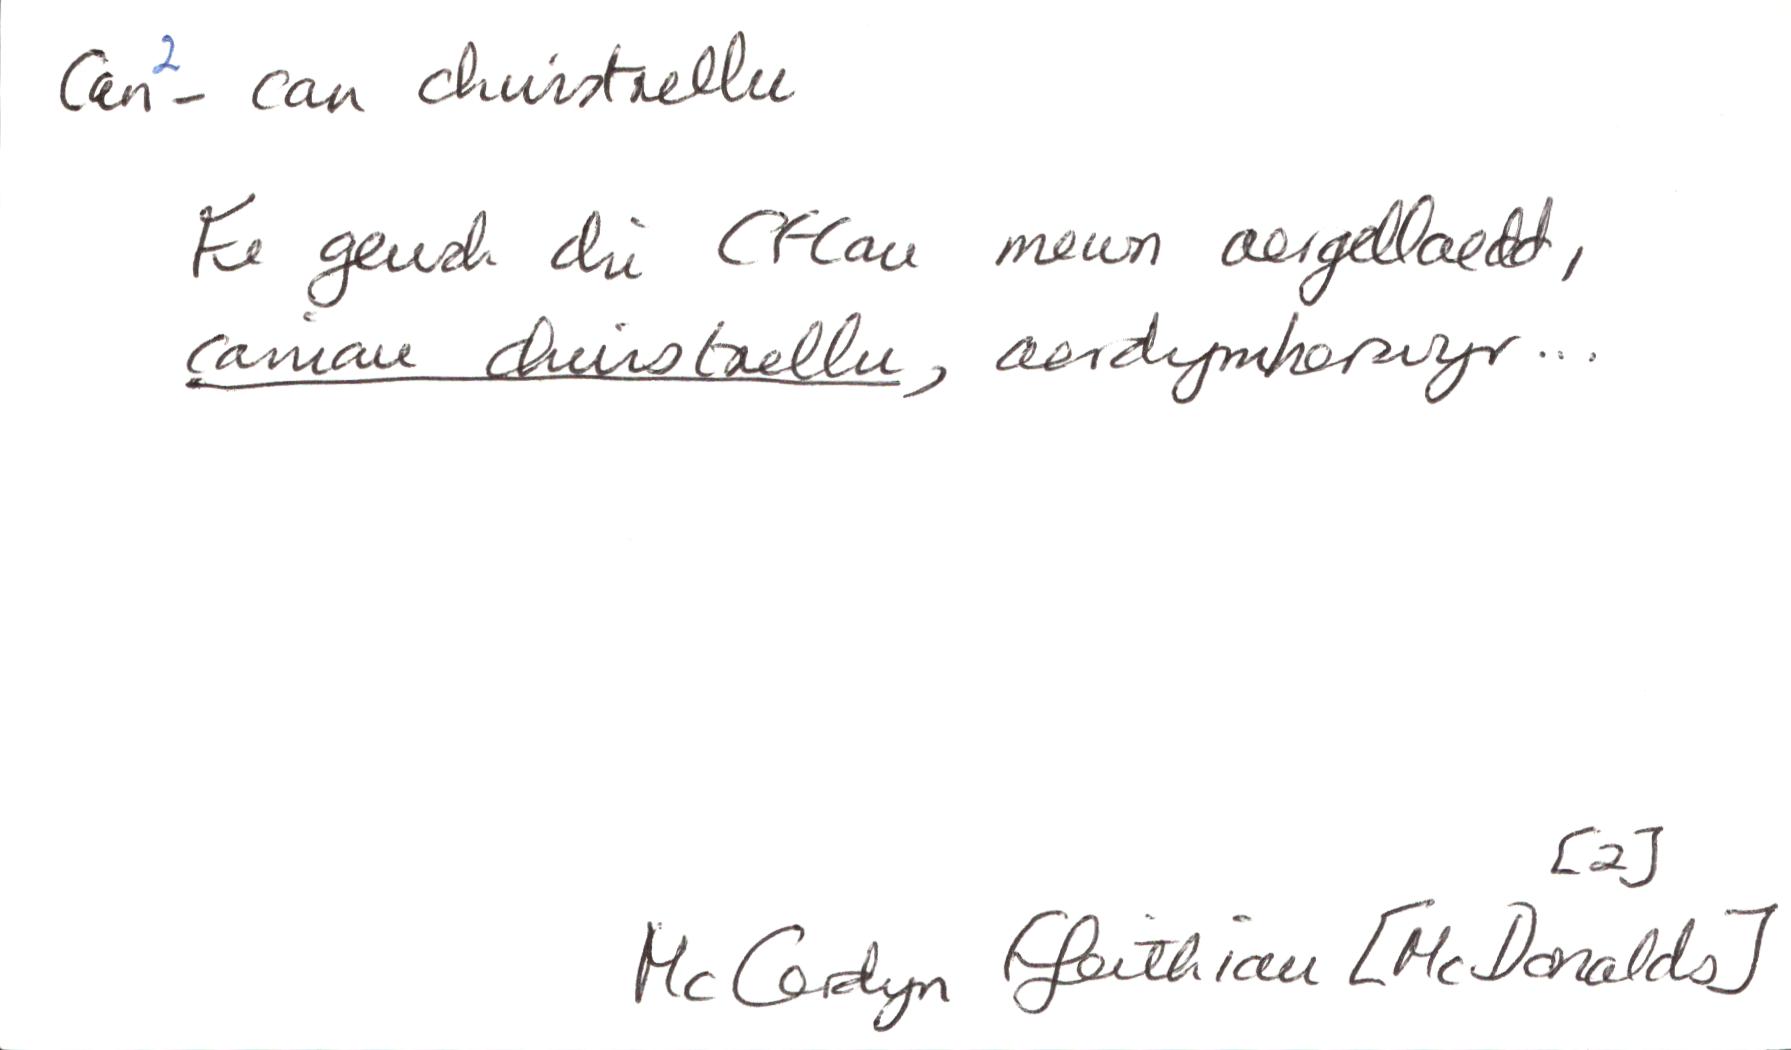 Can² - can chwistrellu
Fe gewch chi CFCau mewn aergelloedd,
caniau chwistrellu, aerdymherwyr...
[2]
Mc Cerdyn Ffeithiau [McDonalds]